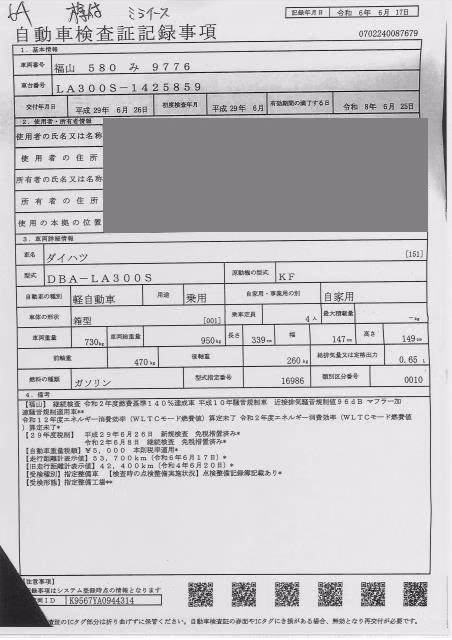 ミライース
記録年月日 令和 6年 6月 17日
自動車検査証記録事項
0702240087679
1．基本情報
車両番号 福山 580 み 9776
車台番号 LA300S-1425859
交付年月日 平成 29年 6月 26日 初度検査年月 平成 29年 6月 有効期間の満了する日 令和 8年 6月 25日
2．使用者・所有者情報
使用者の氏名又は名称
使用者の住所
所有者の氏名又は名称
所有者の住所
使用の本拠の位置
3．車両詳細情報
車名 ダイハツ [151]
型式 DBA-LA300S 原動機の型式 KF
自動車の種別 軽自動車 用途 乗用 自家用・事業用の別 自家用
車体の形状 箱型 [001] 乗車定員 4人 最大積載量 -kg
車両重量 730kg 車両総重量 950kg 長さ 339cm 幅 147cm 高さ 149cm
前軸重 470kg 後軸重 260kg 総排気量又は定格出力 0.65 L
燃料の種類 ガソリン 型式指定番号 16986 類別区分番号 0010
4．備考
【福山】 継続検査 令和2年度燃費基準140%達成車 平成10年騒音規制車 近接排気騒音規制値96dB マフラー加
速騒音規制適用車**
令和12年度エネルギー消費効率(WLTCモード燃費値)算定未了 令和2年度エネルギー消費効率(WLTCモード燃費値
)算定未了*
【29年度税制】 平成29年6月26日 新規検査 免税措置済み*
令和2年6月8日 継続検査 免税措置済み*
【自動車重量税額】￥5,000 本則税率適用*
【走行距離計表示値】53,700km(令和6年6月17日)*
【旧走行距離計表示値】42,400km(令和4年6月20日)*
【受検種別】指定整備車 【検査時の点検整備実施状況】点検整備記録簿記載あり*
【受検形態】指定整備工場**
【注意事項】
記録事項はシステム登録時点の情報となります
ID K9567YA0944314
査証のICタグ部分は折り曲げずに保管ください。自動車検査証の券面やICタグにき損がある場合、無効となり再交付が必要です。